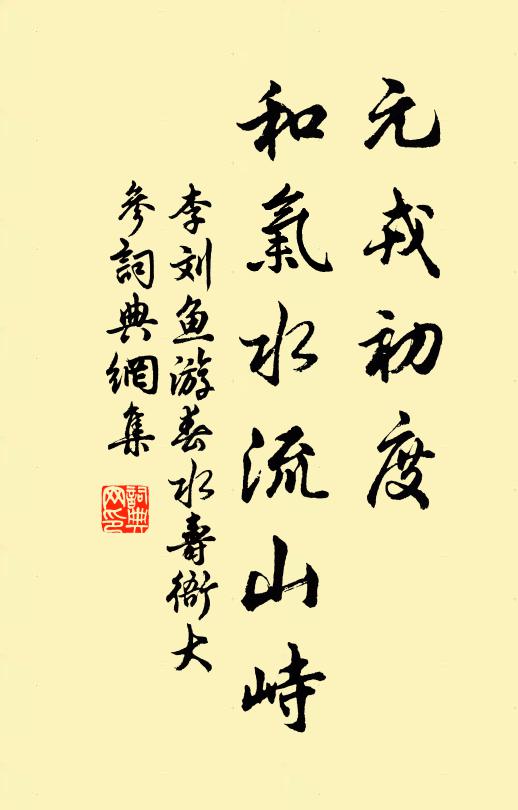 元戎初度
和氣水流山峙
李刘鱼游春水寿衙大
參詞典網集
詞典
网印